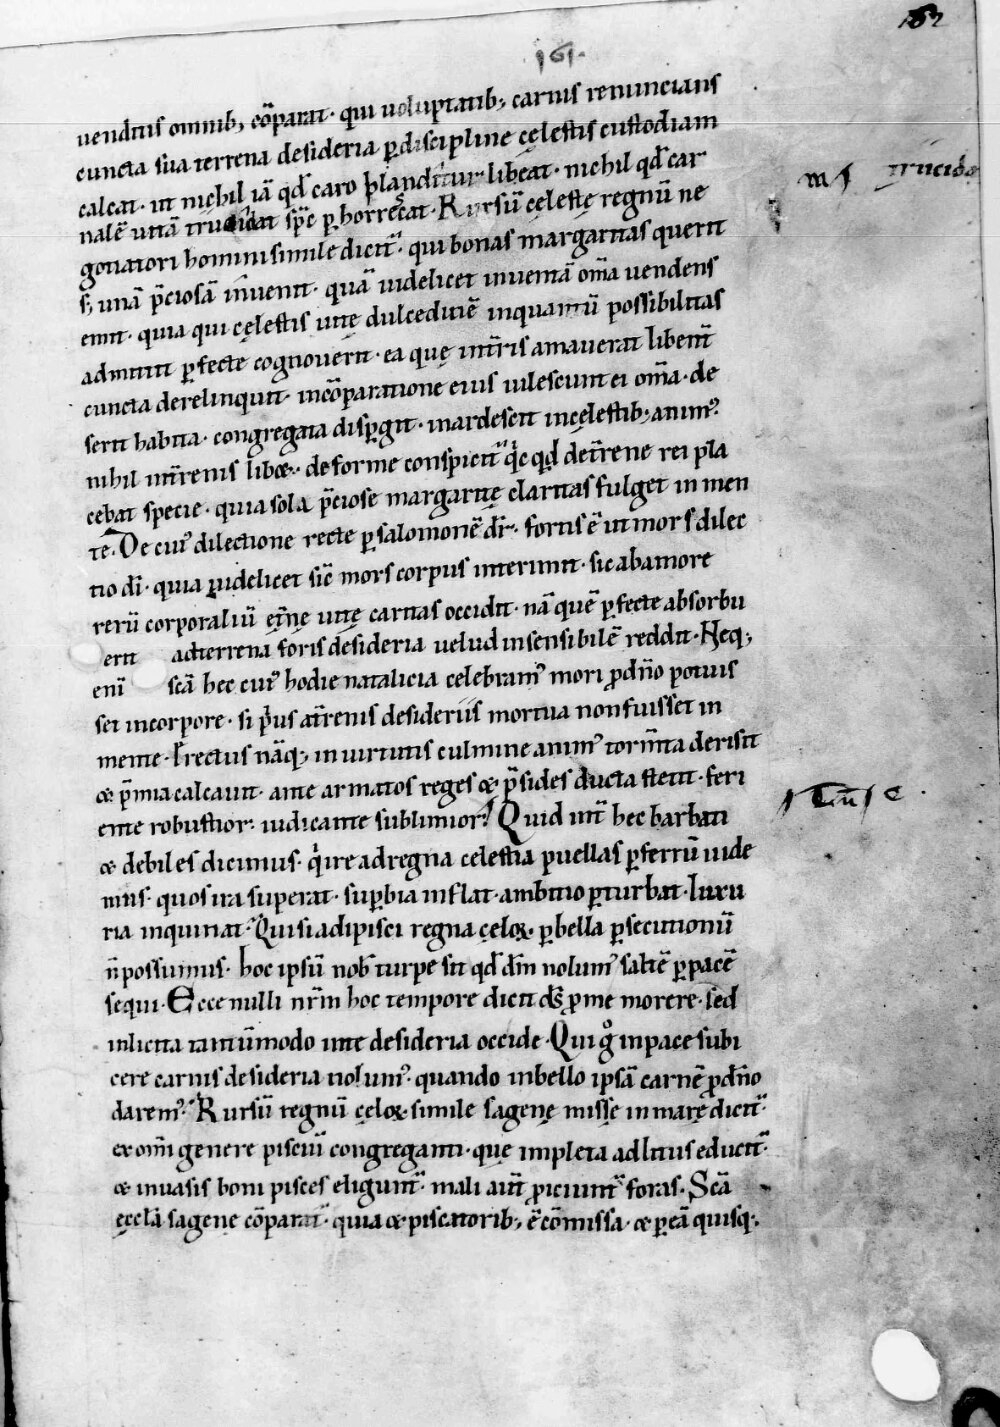 152
161.
uenditis omnib; cōparat · qui uoluptatib; carnis renuncians
cuncta sua terrena desideria ꝑ discipline cęlestis custodiam
calcat · ut nichil iā qđ caro blanditur libeat · nichil qđ car
nalē uitā trucidat sp̄c ꝑhorrescat · Rursū cęleste regnū ne
gotiatori homini simile dicit᷑ · qui bonas margaritas querit
s; unā p̄ciosā inuenit · quā uidelicet inuentā om̄a uendens
emit · quia qui cęlestis uitę dulcedinē inquantū possibilitas
admittit ꝑfecte cognouerit · ea quę int̄ris amauerat libent̄
cuncta derelinquit · incōparatione eius uilescunt ei om̄a · de
serit habita · congregata disꝑgit · inardescit incęlestib; animꝰ
nihil int̄renis libet · deforme conspicit᷑ q͛cqđ det̄rene rei pla
cebat specie · quia sola p̄ciose margaritę claritas fulget in men
te · De cuiꝰ dilectione recte ꝑ salomonē dr̄ · fortis ē ut mors dilec
tio dī · quia uidelicet sic̄ mors corpus interimit · sic ab amore
rerū corporaliū et̄nę uitę caritas occidit · nā quē ꝑfecte absorbu
erit adterrena foris desideria uelud insensibilē reddit · Neq;
enī sc̄a hec cuiꝰ hodie natalicia celebramꝰ mori ꝓ dn̄o potuis
set incorpore · si p͛us at̄renis desideriis mortua non fuisset in
mente · Erectus nāq; in uirtutis culmine animꝰ torm̄ta derisit
& p̄mia calcauit · ante armatos reges & p̄sides ducta stetit · feri
ente robustior · iudicante sublimior · Quid int̄ hec barbati
& debiles dicimus · q͛ ire ad regna celestia puellas ꝑ ferrū uide
mus · quos ira superat · suꝑbia inflat · ambitio ꝑturbat · luxu
ria inquinat · Qui si adipisci regna cęloꝝ ꝑ bella ꝑsecutionū
n̄ possumus · hoc ipsū nob̄ turpe sit qđ dm̄ nolumꝰ saltē ꝑ pacē
sequi · Ecce nulli nr̄m hoc tempore dicit ds̄ ꝓ me morere · sed
inlicita tantūmodo inte desideria occide · Qui g̊ inpace subi
cere carnis desideria nolumꝰ · quando inbello ipsā carnē ꝓ dn̄o
daremꝰ · Rursū regnū cęloꝝ simile sagenę missę in marę dicit᷑ ·
ex om̄i genere pisciū congreganti · quę impleta ad litus educit᷑ ·
& in uasis boni pisces eligunt᷑ · mali aut̄ ꝓiciunt᷑ foras · Sc̄a
ęcclā sagene cōparat᷑ · quia & piscatorib; ē cōmissa · & ꝑ eā quisq;